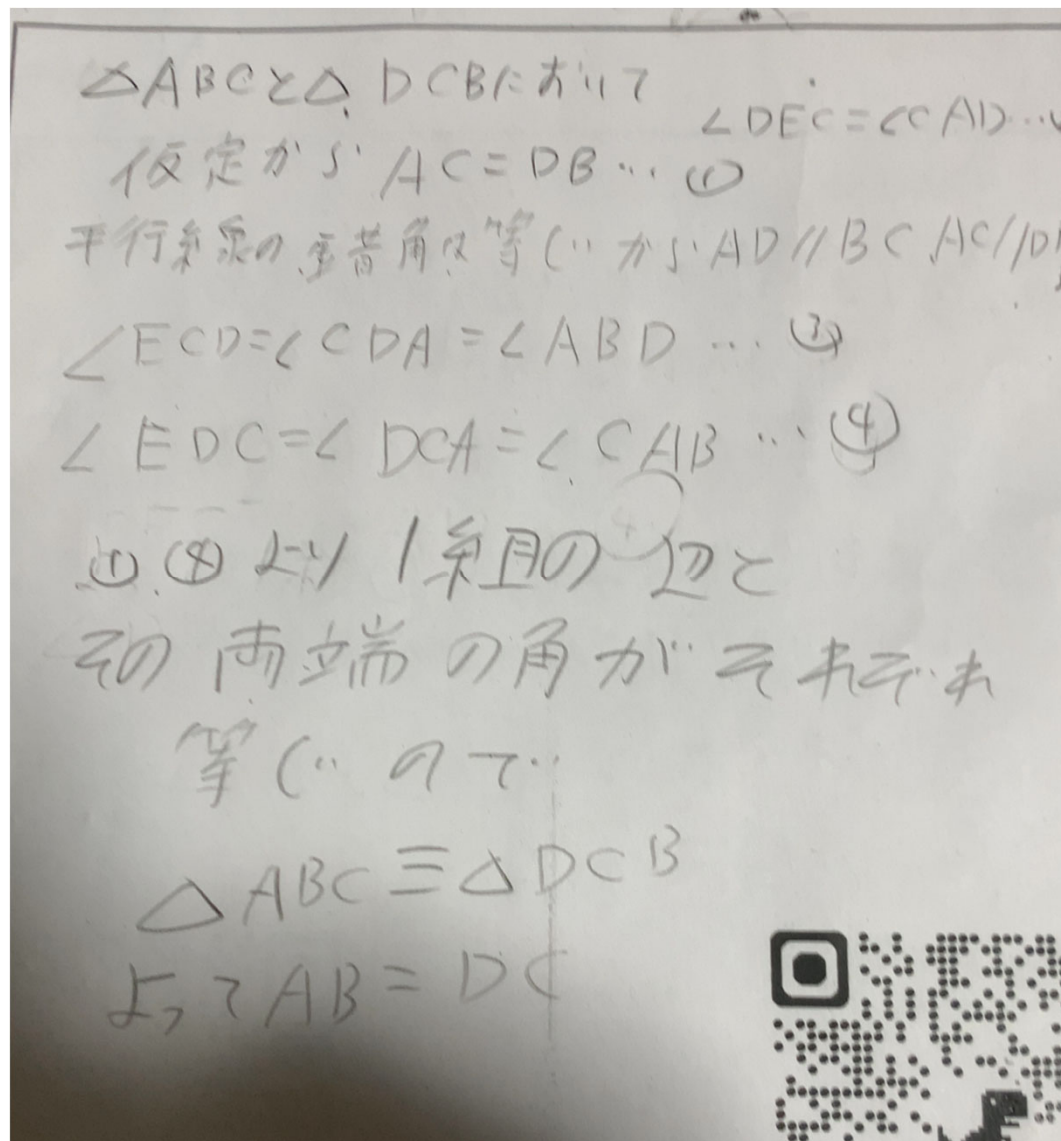 △ABCと△DCBにおいて
∠DEC=∠CAD…
仮定から AC=DB…①
平行線の錯角は等しいから AD//BC AC//D
∠ECD=∠CDA=∠ABD…③
∠EDC=∠DCA=∠CAB…④
①④より1組の辺と
その両端の角がそれぞれ
等しいので
△ABC≡△DCB
よってAB=DC